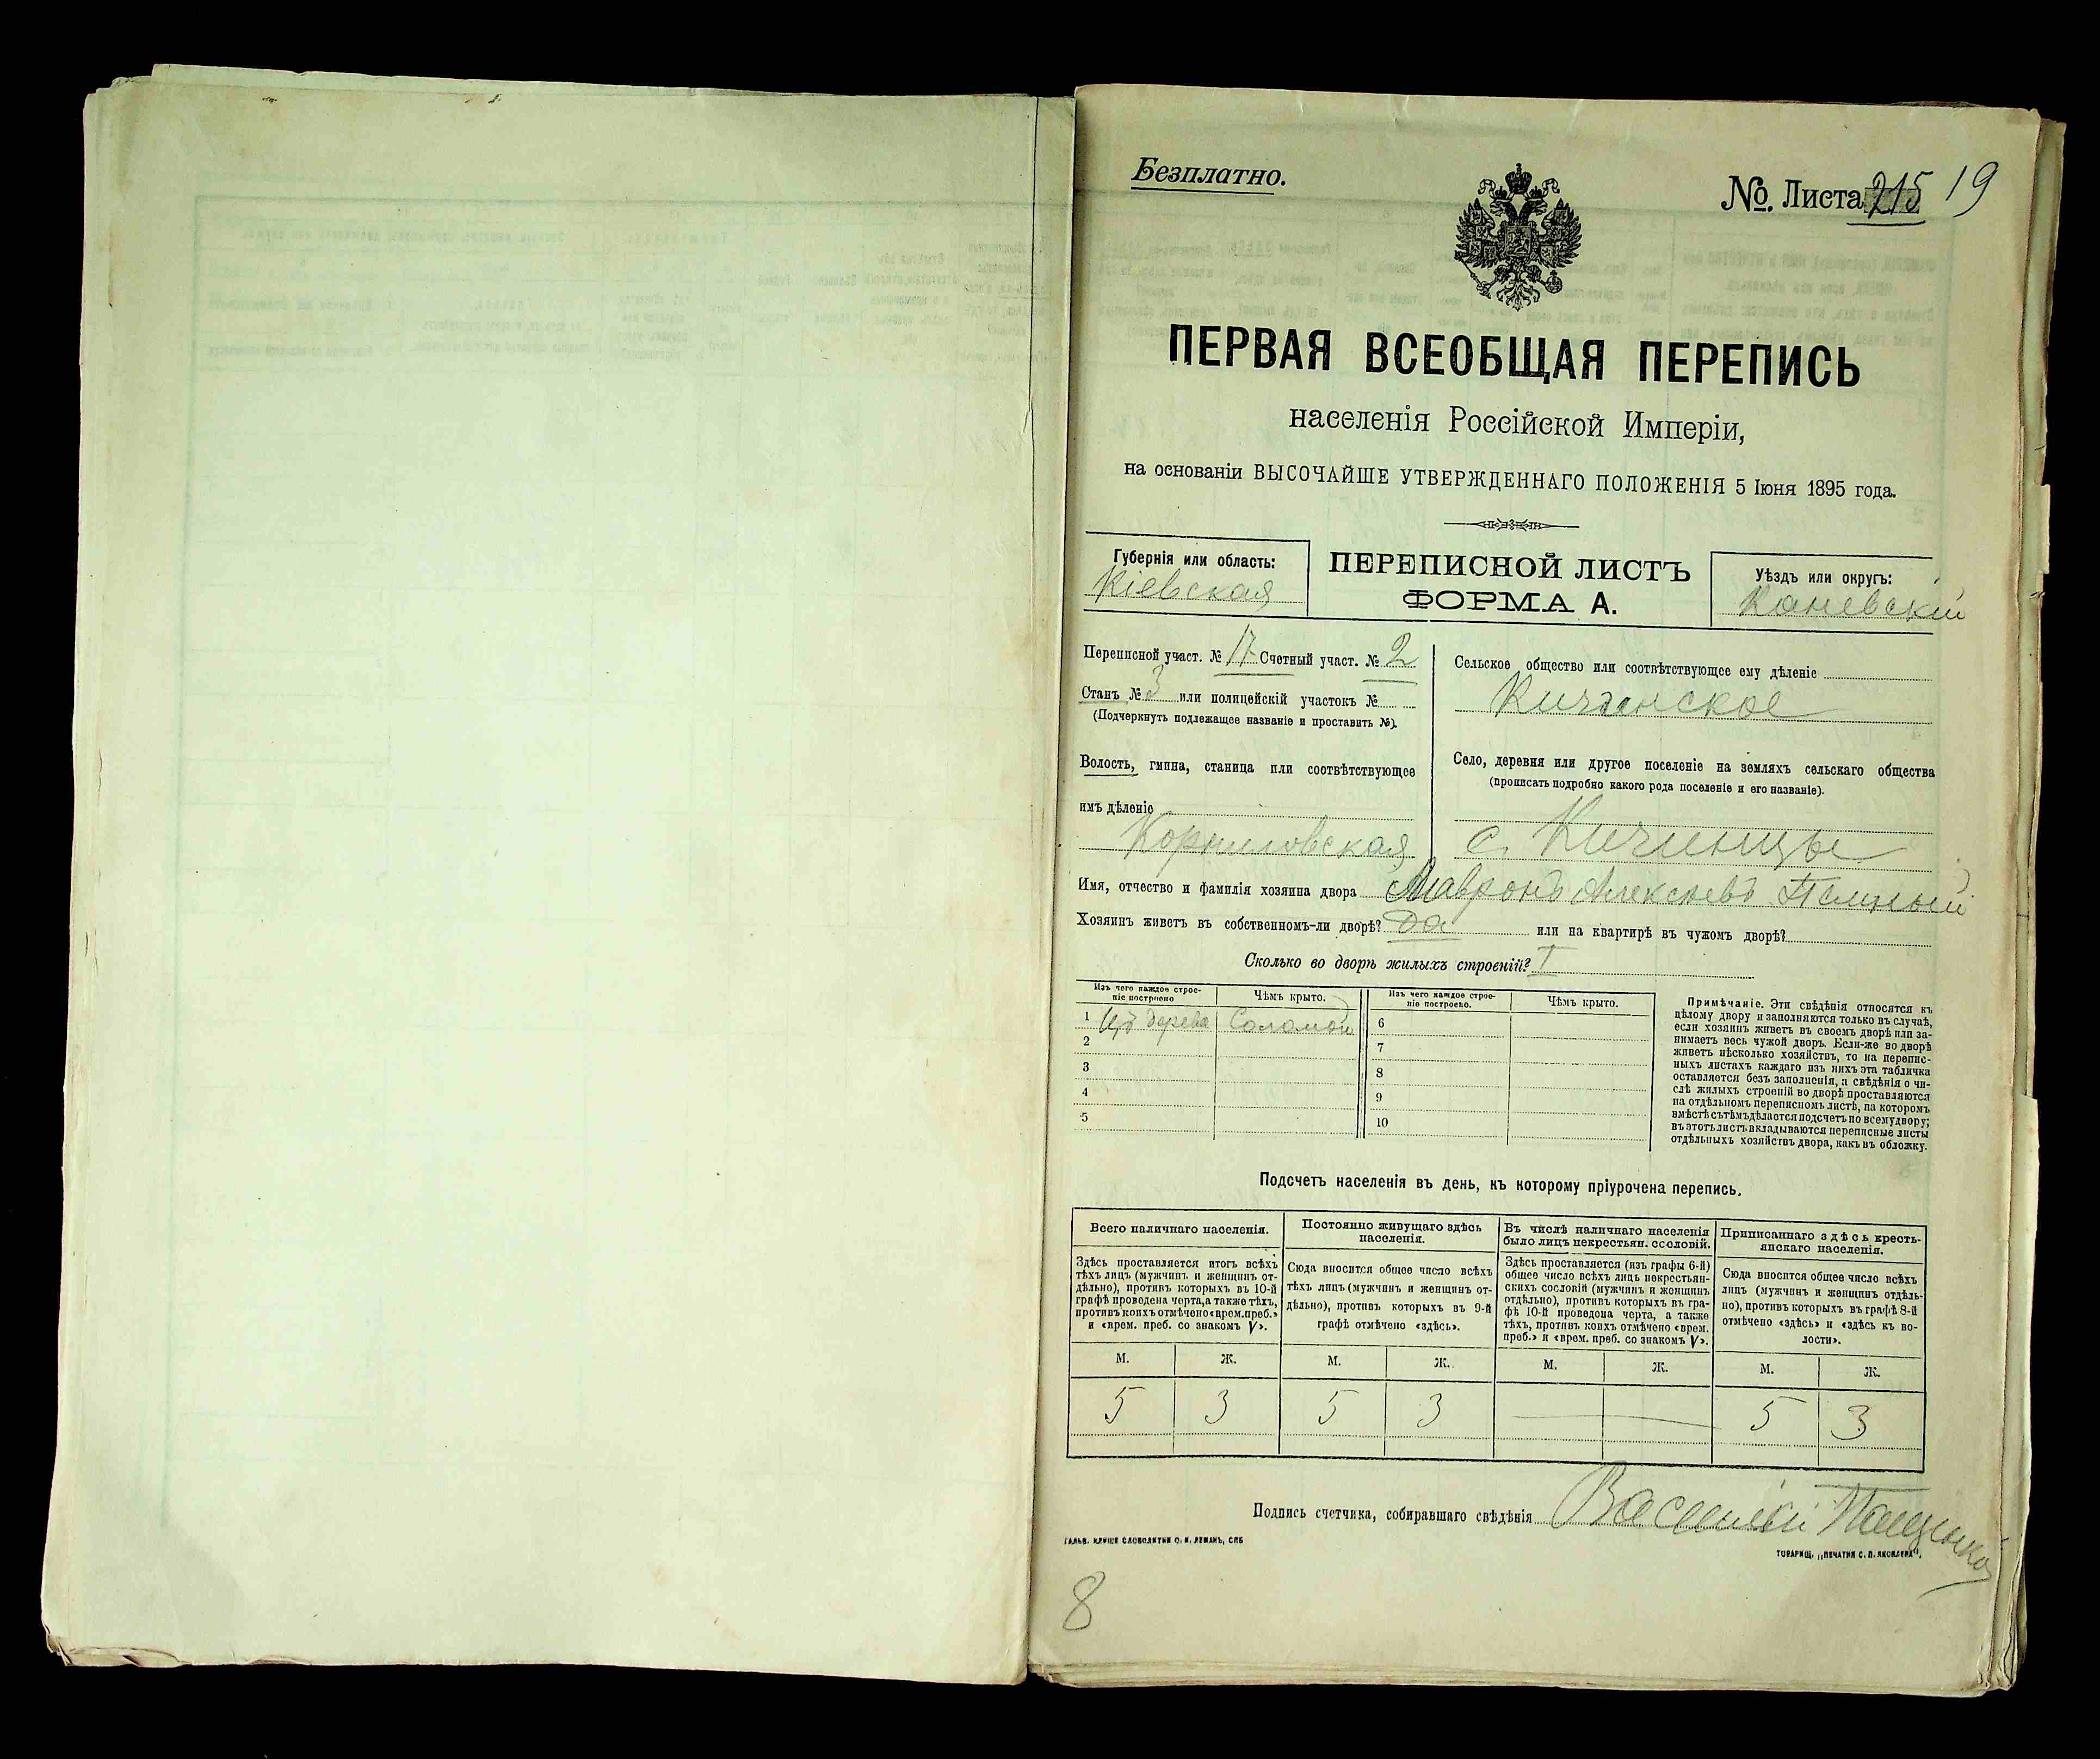 Безплатно.
№. Листа 215 19
ПЕРВАЯ ВСЕОБЩАЯ ПЕРЕПИСЬ
населенія Россійской Имперіи,
на основаніи ВЫСОЧАЙШЕ УТВЕРЖДЕННАГО ПОЛОЖЕНІЯ 5 Іюня 1895 года.
Губернія или область:
Кіевская
ПЕРЕПИСНОЙ ЛИСТЪ
ФОРМА А.
Уѣздъ или округъ:
Каневскій
Переписной участ. № 17 Счетный участ. № 2
Станъ № 3 или полицейскій участокъ №
(Подчеркнуть подлежащее названіе и проставить №).
Волость, гмина, станица или соотвѣтствующее
имъ дѣленіе
Корниловская
Сельское общество или соотвѣтствующее ему дѣленіе
Кичинское
Село, деревня или другое поселеніе на земляхъ сельскаго общества
(прописать подробно какого рода поселеніе и его названіе).
с. Кичинцы
Имя, отчество и фамилія хозяина двора Алексѣевъ
Хозяинъ живетъ въ собственномъ-ли дворѣ? Да или на квартирѣ въ чужомъ дворѣ?
Сколько во дворѣ жилыхъ строеній? 1
Изъ чего каждое строе-
ніе построено
Чѣмъ крыто.
Изъ чего каждое строе-
ніе построено.
Чѣмъ крыто.
1 Изъ дерева Соломой
2
3
4
5
6
7
8
9
10
Примѣчаніе. Эти свѣдѣнія относятся къ
цѣлому двору и заполняются только въ случаѣ,
если хозяинъ живетъ въ своемъ дворѣ или за-
нимаетъ весь чужой дворъ. Если-же во дворѣ
живетъ нѣсколько хозяйствъ, то на перепис-
ныхъ листахъ каждаго изъ нихъ эта табличка
оставляется безъ заполненія, а свѣдѣнія о чи-
слѣ жилыхъ строеній во дворѣ проставляются
на отдѣльномъ переписномъ листѣ, на которомъ
вмѣстѣ съ тѣмъ дѣлается подсчетъ по всему двору;
въ этотъ листъ вкладываются переписные листы
отдѣльныхъ хозяйствъ двора, какъ въ обложку.
Подсчетъ населенія въ день, къ которому пріурочена перепись.
Всего наличнаго населенія.
Здѣсь проставляется итогъ всѣхъ
тѣхъ лицъ (мужчинъ и женщинъ от-
дѣльно), противъ которыхъ въ 10-й
графѣ проведена черта, а также тѣхъ,
противъ коихъ отмѣчено «врем. преб.»
и «врем. преб. со знакомъ V».
Постоянно живущаго здѣсь
населенія.
Сюда вносится общее число всѣхъ
тѣхъ лицъ (мужчинъ и женщинъ от-
дѣльно), противъ которыхъ въ 9-й
графѣ отмѣчено «здѣсь».
Въ числѣ наличнаго населенія
было лицъ некрестьян. сословій.
Здѣсь проставляется (изъ графы 6-й)
общее число всѣхъ лицъ некрестьян-
скихъ сословій (мужчинъ и женщинъ
отдѣльно), противъ которыхъ въ гра-
фѣ 10-й проведена черта, а также
тѣхъ, противъ коихъ отмѣчено «врем.
преб.» и «врем. преб. со знакомъ V».
Приписаннаго здѣсь кресть-
янскаго населенія.
Сюда вносится общее число всѣхъ
лицъ (мужчинъ и женщинъ отдѣль-
но), противъ которыхъ въ графѣ 8-й
отмѣчено «здѣсь» и «здѣсь къ во-
лости».
М. Ж. М. Ж. М. Ж. М. Ж.
5 3 5 3 — — 5 3
Подпись счетчика, собиравшаго свѣдѣнія Василій Пащенко
ГАЛЬВ. КЛИШЕ СЛОВОЛИТНИ О. И. ЛЕМАНЪ, СПБ
ТОВАРИЩ. „ПЕЧАТНЯ С. П. ЯКОВЛЕВА“.
8